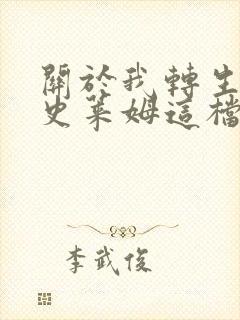 關於我轉生
史萊姆這檔
李武俊